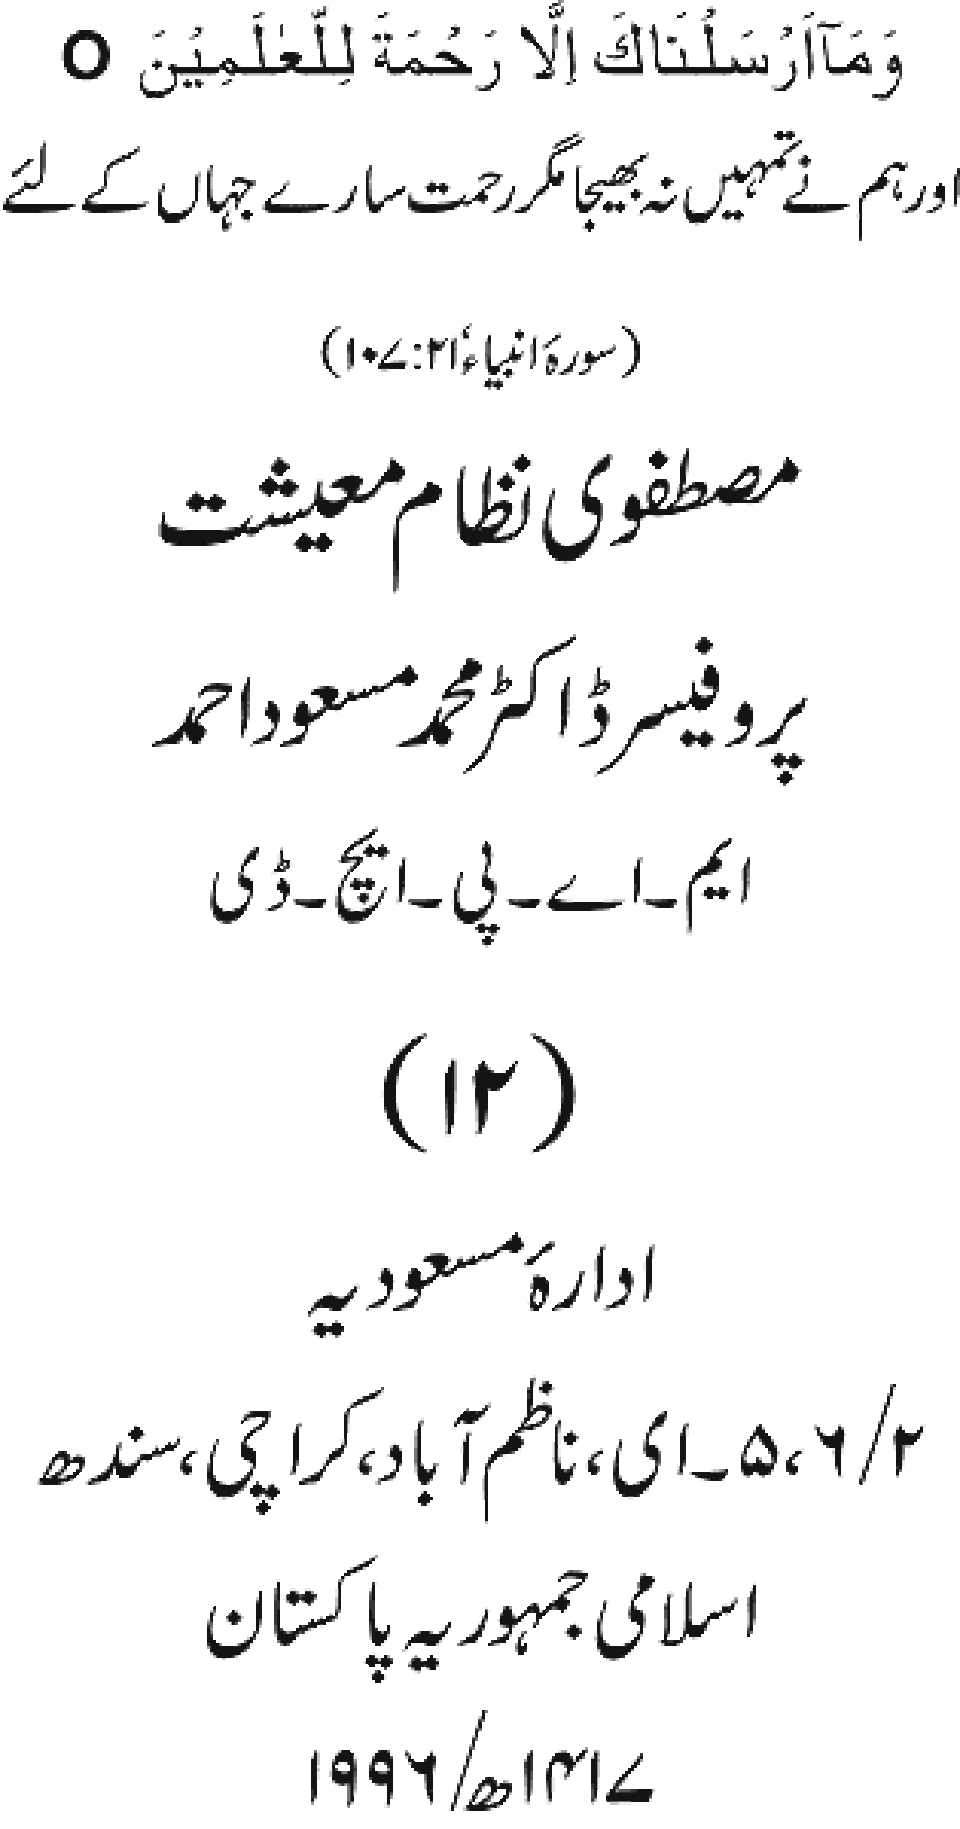 وَمَآاَرُسَلُنَاكَ اِلَّا رَحُمَةَ لِلّعٰلَمِيُنَ O
اور ہم نے تمہیں نہ بھیجا مگر رحمت سارے جہاں کے لئے
(سورۂ انبیاء، ۲۱:۱۰۷)
مصطفوی نظام معیشت
پروفیسر ڈاکٹر محمد مسعود احمد
ایم۔اے۔پی۔ایچ۔ڈی
(۱۲)
ادارۂ مسعودیہ
۶/۲، ۵۔ای، ناظم آباد، کراچی، سندھ
اسلامی جمہوریہ پاکستان
۱۴۱۷ھ/۱۹۹۶